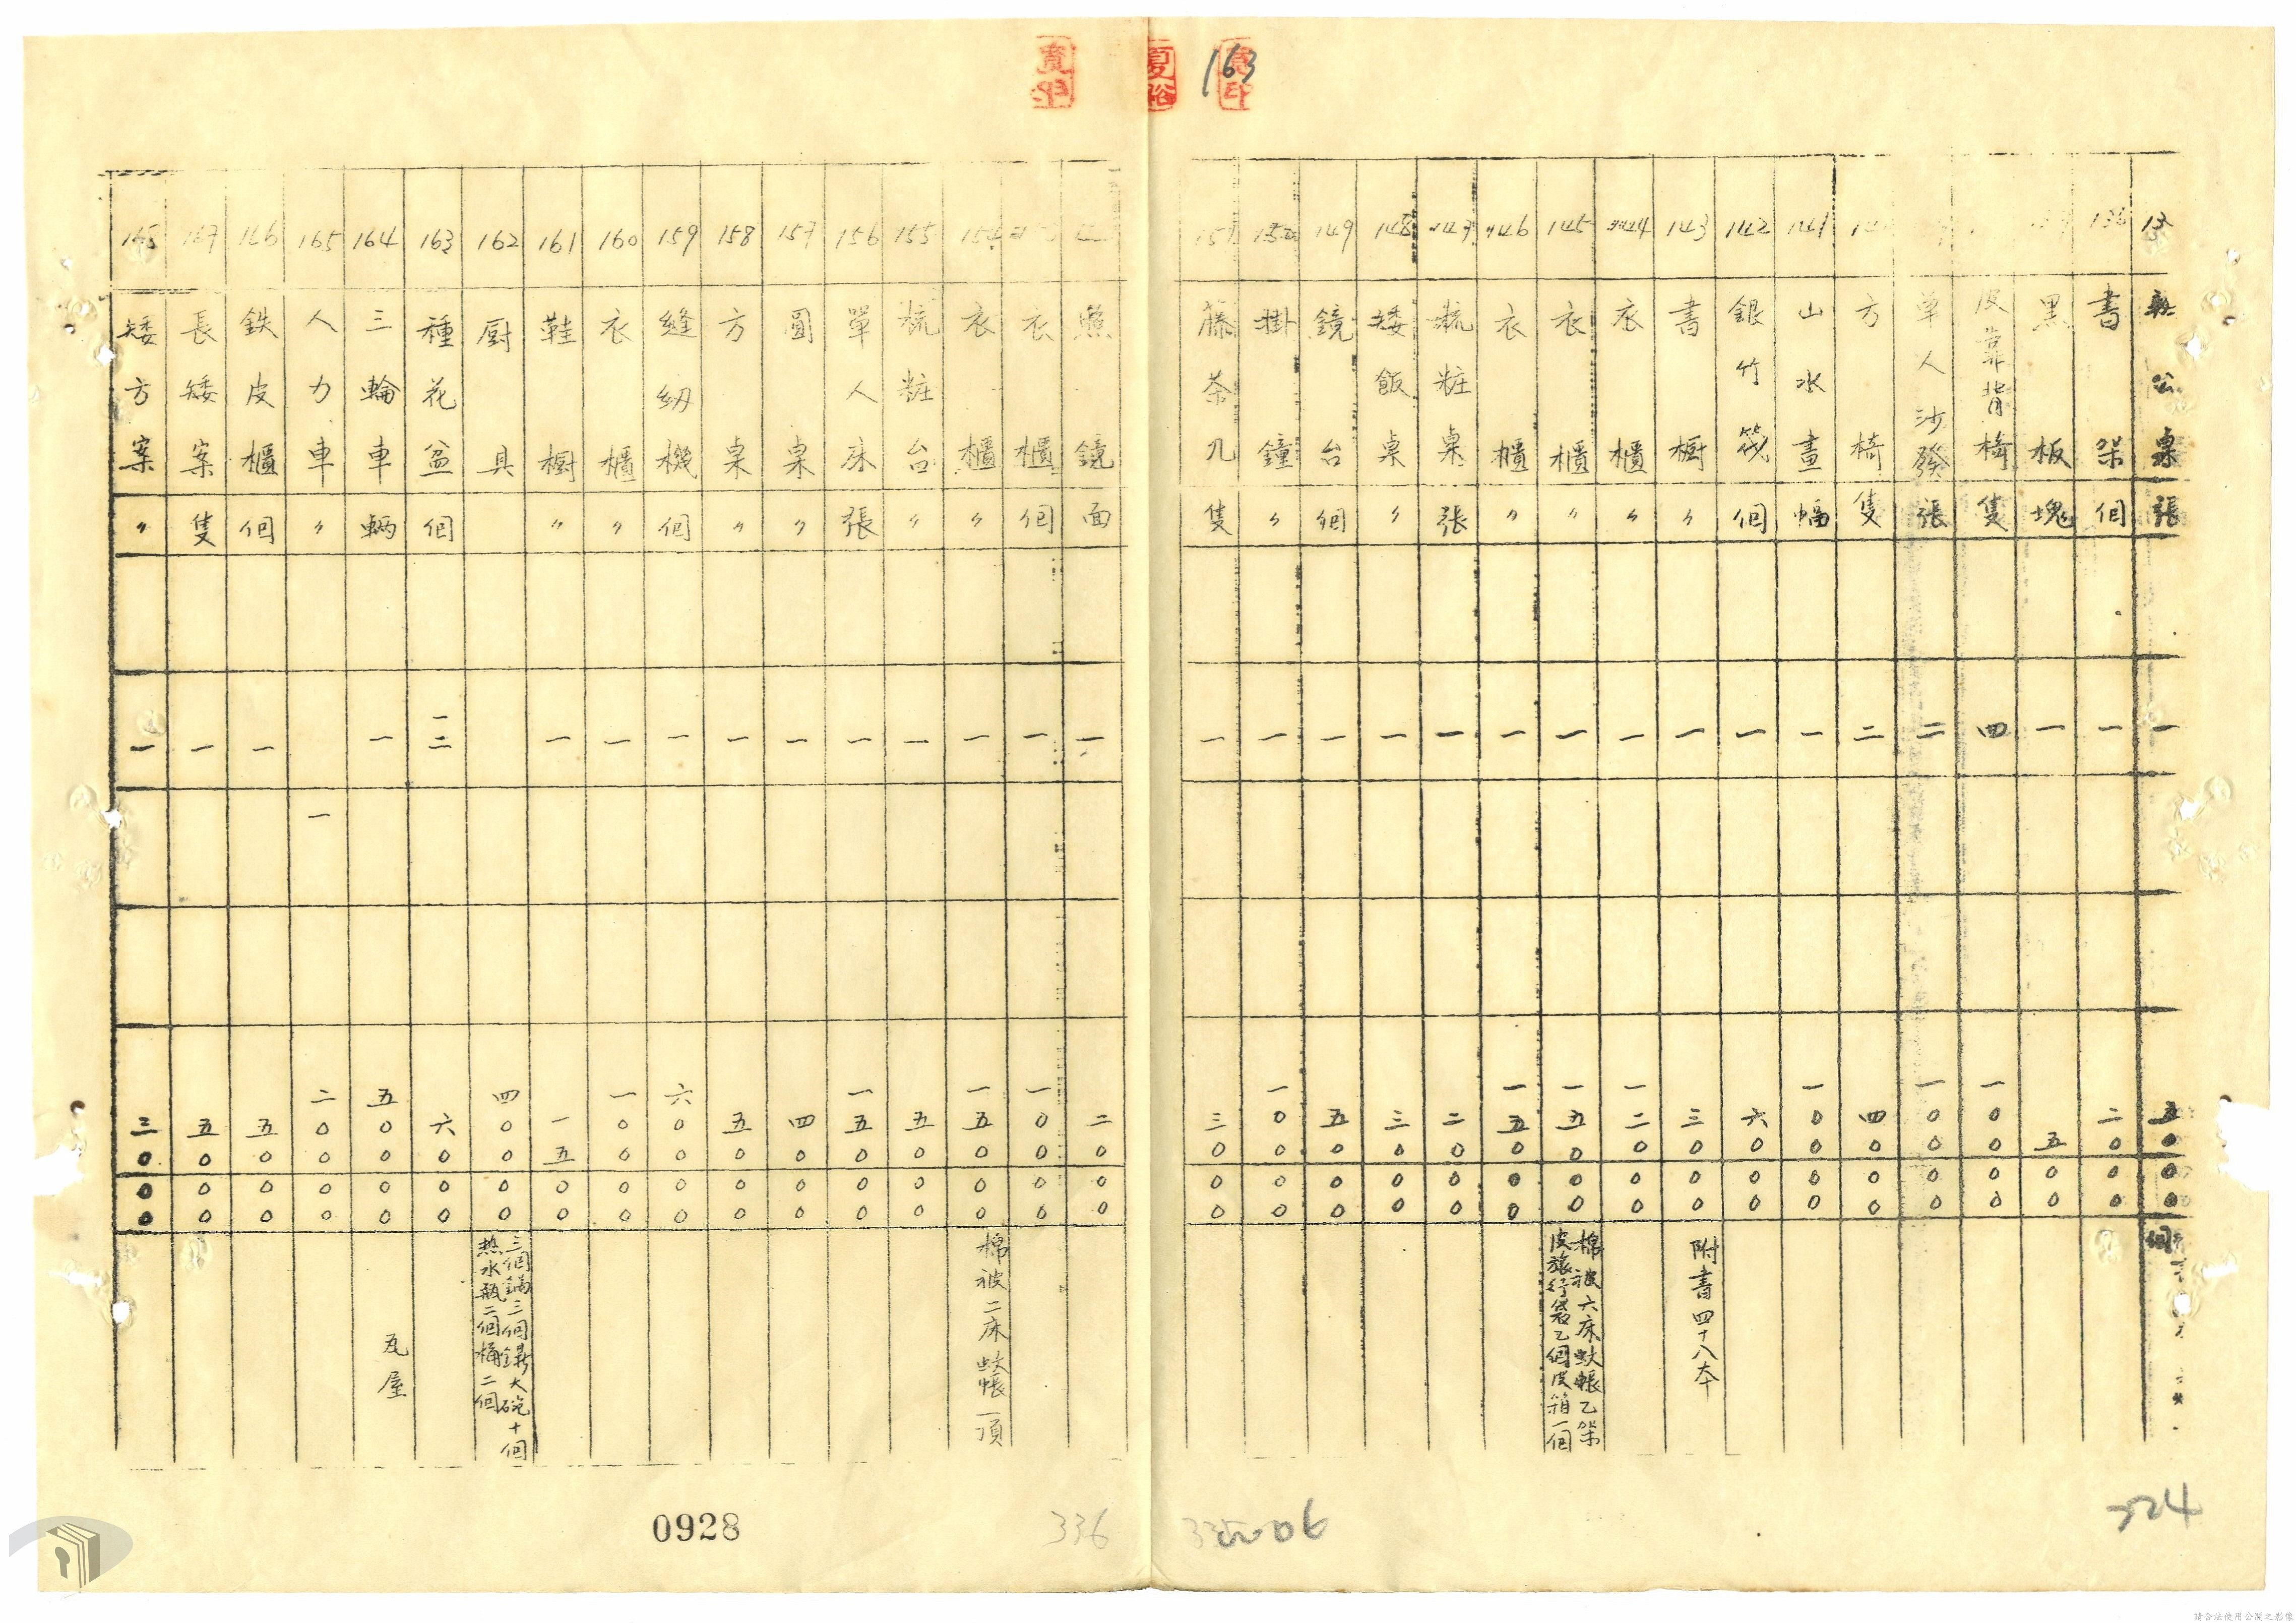 163
辦公桌 張 一 五〇〇〇
136 書架 個 一 二〇〇〇
黑板 塊 一 五〇〇
皮靠背椅 隻 四 一〇〇〇〇
單人沙發 張 二 一〇〇〇〇
方椅 隻 二 四〇〇〇
141 山水畫 幅 一 一〇〇〇〇
142 銀竹筏 個 一 六〇〇〇
143 書橱 〃 一 三〇〇〇 附書四十八本
144 衣櫃 〃 一 一二〇〇〇
145 衣櫃 〃 一 一五〇〇〇 棉被六床蚊帳乙架皮旅行袋乙個皮箱一個
146 衣櫃 〃 一 一五〇〇〇
147 梳粧桌 張 一 二〇〇〇
148 矮飯桌 〃 一 三〇〇〇
149 鏡台 個 一 五〇〇〇
150 掛鐘 〃 一 一〇〇〇〇
151 藤茶几 隻 一 三〇〇〇
照鏡 面 一 二〇〇〇
衣櫃 個 一 一〇〇〇〇
154 衣櫃 〃 一 一五〇〇〇 棉被二床蚊帳一頂
155 梳粧台 〃 一 五〇〇〇
156 單人床 張 一 一五〇〇〇
157 圓桌 〃 一 四〇〇〇
158 方桌 〃 一 五〇〇〇
159 縫紉機 個 一 六〇〇〇〇
160 衣櫃 〃 一 一〇〇〇〇
161 鞋橱 〃 一 一五〇〇
162 厨具 四〇〇〇〇 三個鍋三個鼎大碗十個熱水瓶二個桶二個
163 種花盆 個 一二 六〇〇〇
164 三輪車 輛 一 五〇〇〇〇 瓦屋
165 人力車 〃 一 二〇〇〇〇
166 鉄皮櫃 個 一 五〇〇〇
167 長矮案 隻 一 五〇〇〇
168 矮方案 〃 一 三〇〇〇
0928
336
324
請合法使用公開之影像